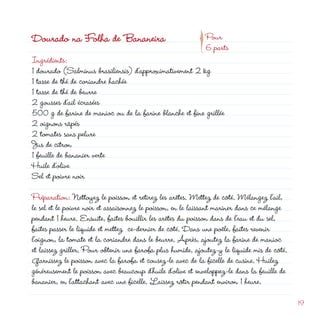 Dourado na Folha de Bananeira
Pour
6 parts
Ingrédients:
1 dourado (Salminus brasiliensis) d'approximativement 2 kg
1 tasse de thé de coriandre hachée
1 tasse de thé de beurre
2 gousses d'ail écrasées
500 g de farine de manioc ou de la farine blanche et fine grillée
2 oignons râpés
2 tomates sans pelure
Jus de citron
1 feuille de bananier verte
Huile d'olive
Sel et poivre noir
Préparation: Nettoyez le poisson et retirez les arêtes. Mettez de coté. Mélangez l'ail,
le sel et le poivre noir et assaisonnez le poisson, en le laissant mariner dans ce mélange
pendant 1 heure. Ensuite, faites bouillir les arêtes du poisson dans de l'eau et du sel,
faites passer le liquide et mettez ce-dernier de côté. Dans une poêle, faites revenir
l'oignon, la tomate et la coriandre dans le beurre. Après, ajoutez la farine de manioc
et laissez griller. Pour obtenir une farofa plus humide, ajoutez-y le liquide mis de côté.
Garnissez le poisson avec la farofa et cousez-le avec de la ficelle de cuisine. Huilez
généreusement le poisson avec beaucoup d'huile d'olive et enveloppez-le dans la feuille de
bananier, en l'attachant avec une ficelle. Laissez rôtir pendant environ 1 heure.
19